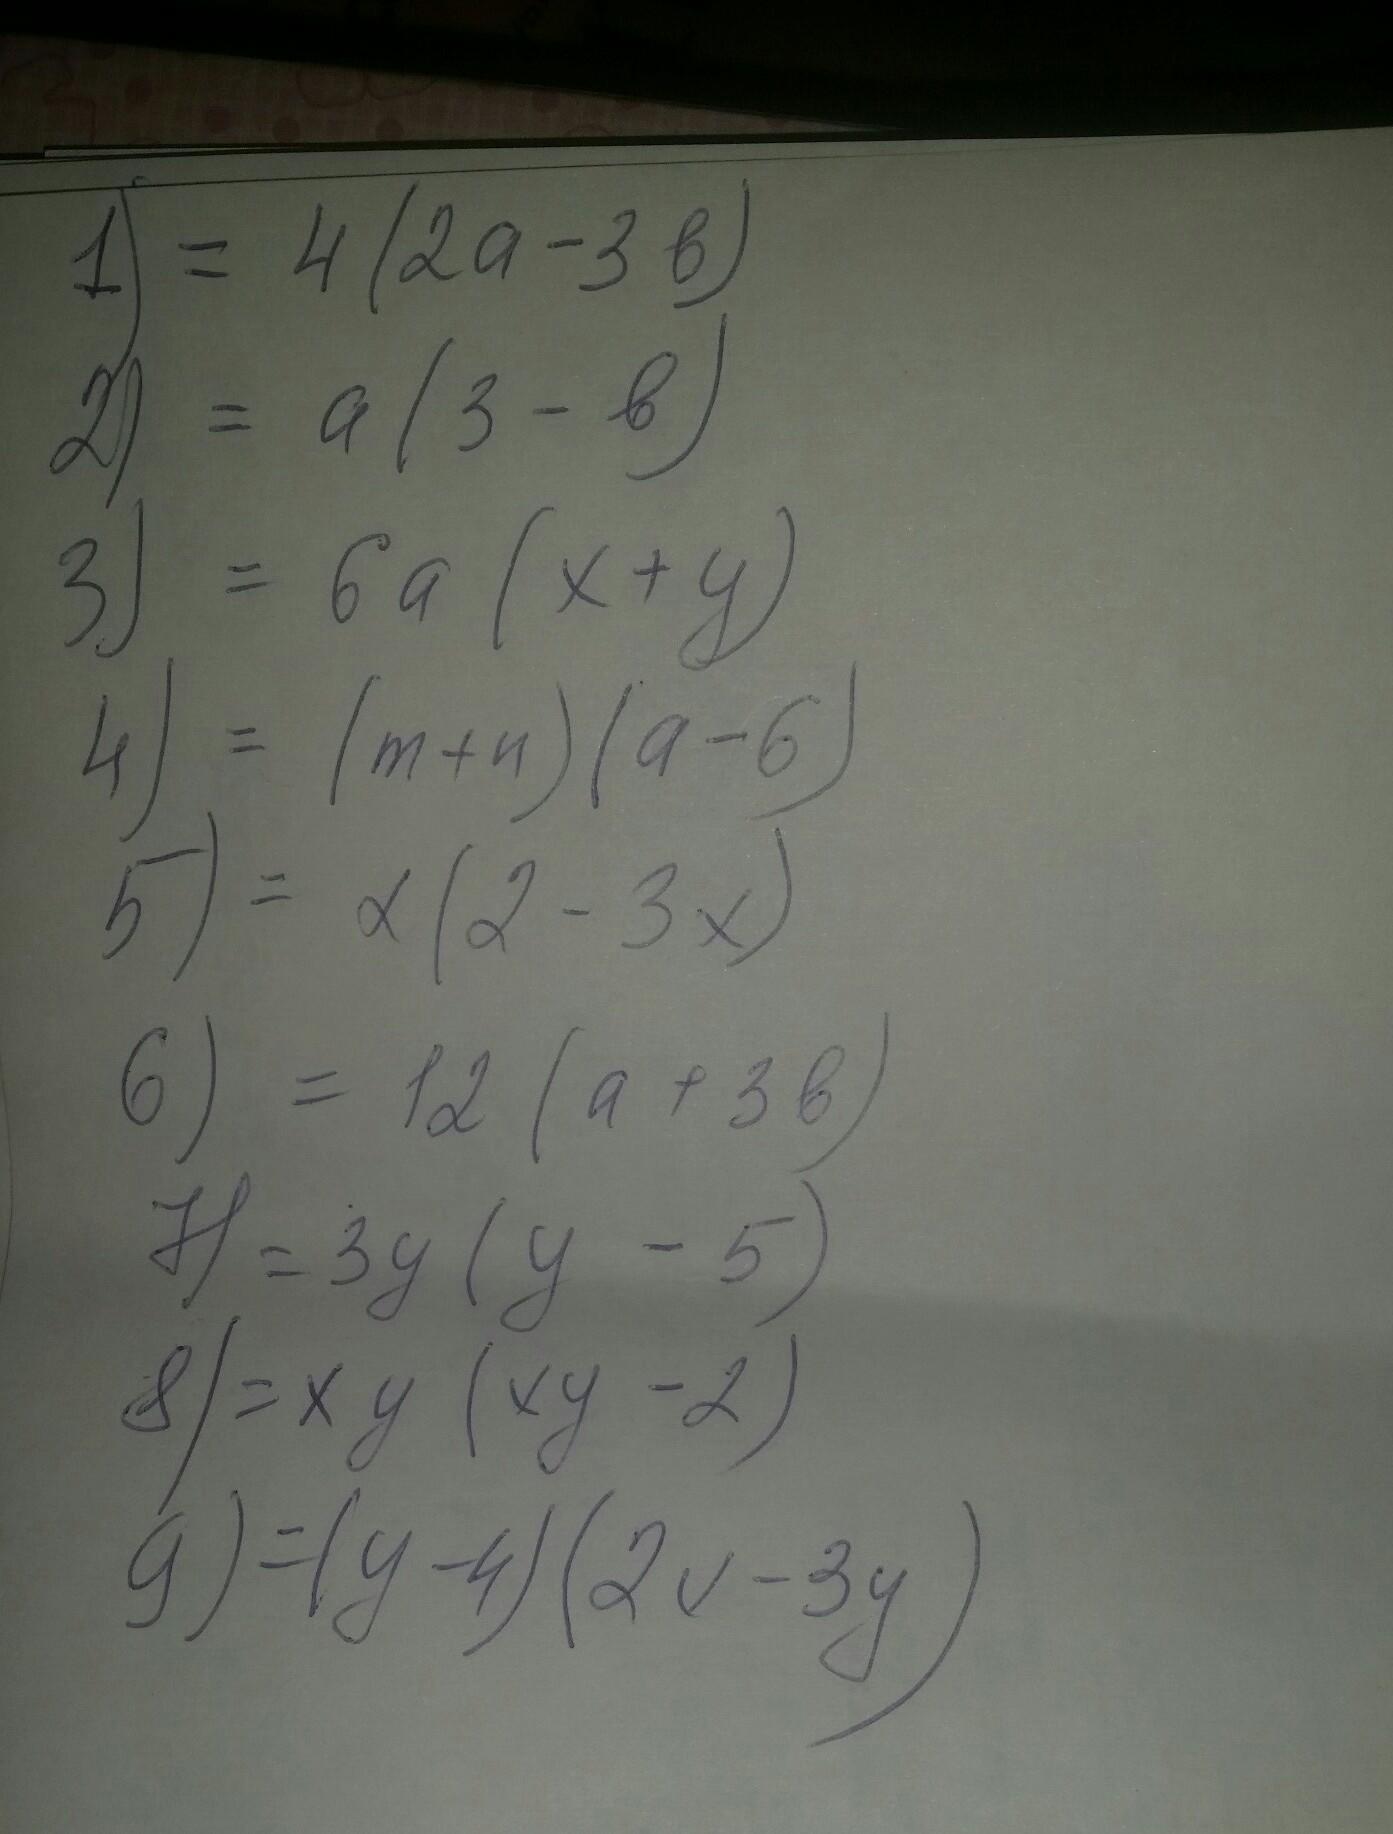 1) = 4(2a-3b)
2) = a(3-b)
3) = 6a(x+y)
4) = (m+n)(a-6)
5) = x(2-3x)
6) = 12(a+3b)
7) = 3y(y-5)
8) = xy(xy-2)
9) = (y-4)(2x-3y)